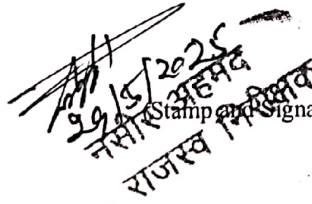 29/5/2025
(Stamp and Signa
नसीर अहमद
राजस्व निरीक्षक